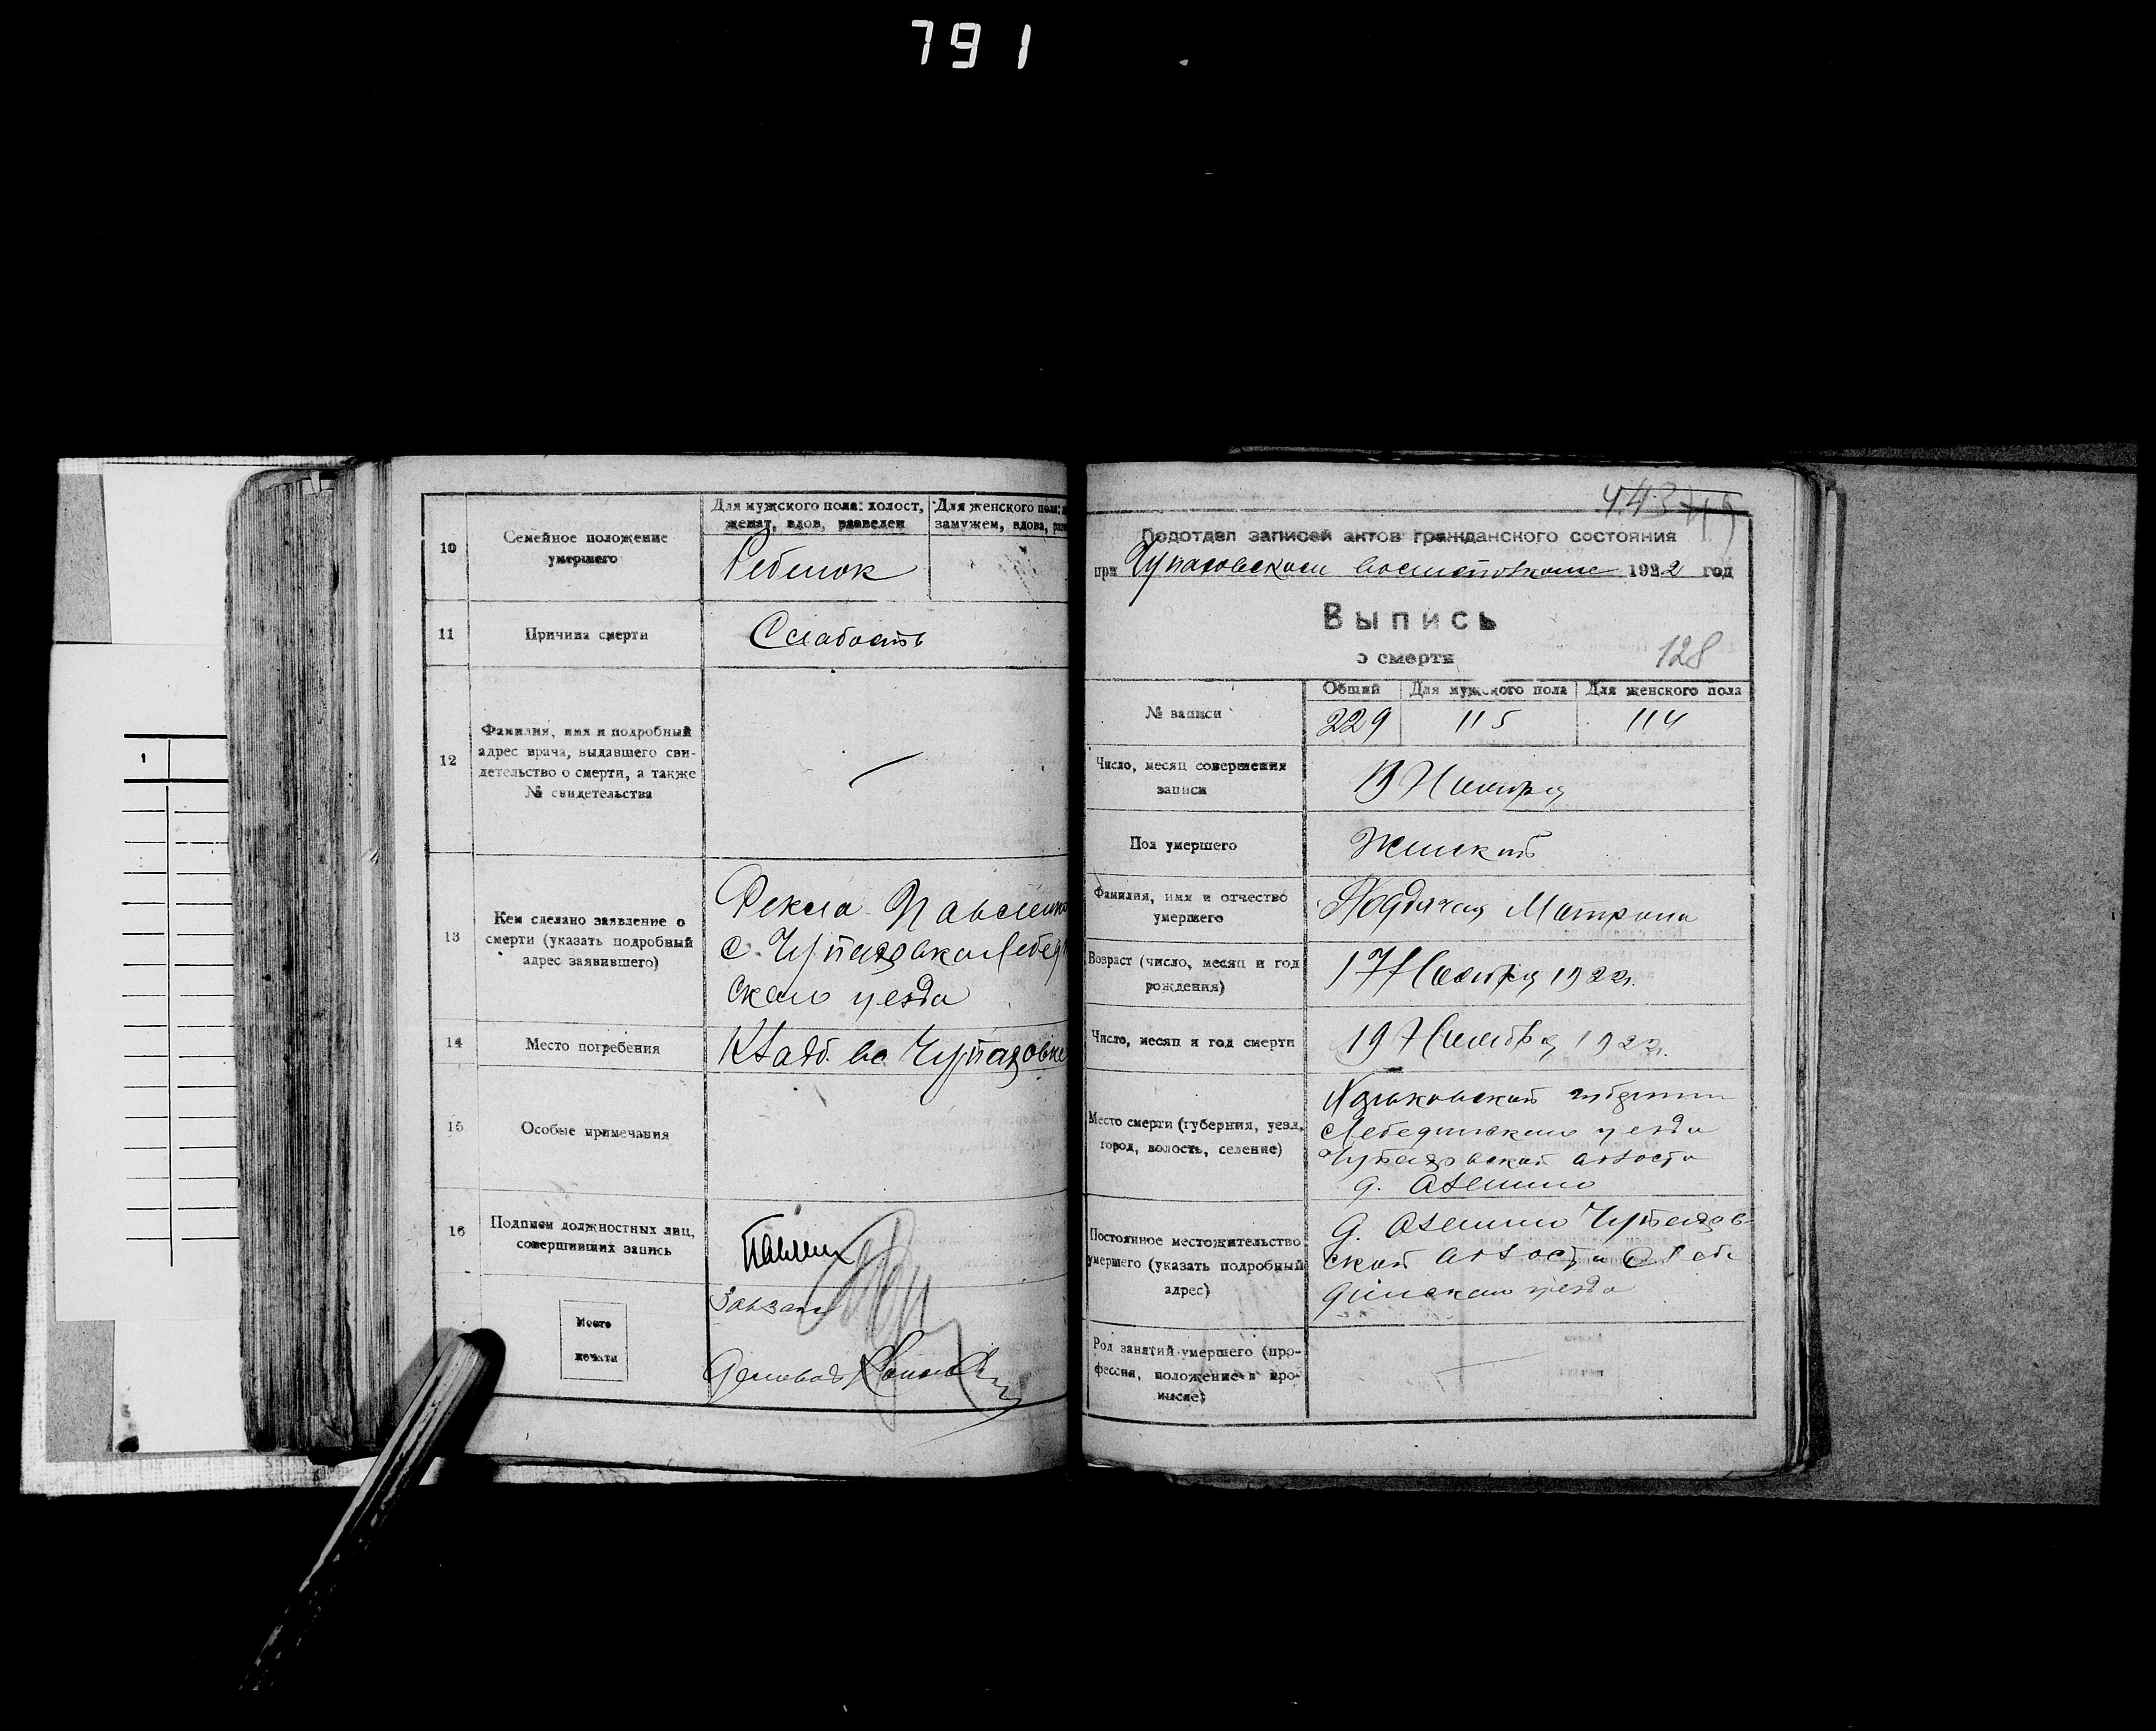 791
10
Семейное положение
умершего
Для мужского пола: холост,
женат, вдов, разведен
Для женского пола:
замужем, вдова,
Ребенок
11
Причина смерти
Слабость
12
Фамилия, имя и подробный
адрес врача, выдавшего сви-
детельство о смерти, а также
№ свидетельства
—
13
Кем сделано заявление о
смерти (указать подробный
адрес заявившего)
Фекла
с. Чупаховка Лебед
ского уезда
14
Место погребения
Кладб. в с Чупаховке
15
Особые примечания
16
Подписи должностных лиц,
совершивших запись
Место
печати
443
Подотдел записей актов гражданского состояния
при Чупаховском 1922 год
Выпись
о смерти
128
№ записи
Общий Для мужского пола Для женского пола
229 115 114
Число, месяц совершения
записи
19 Ноября
Пол умершего
Женский
Фамилия, имя и отчество
умершего
Матрона
Возраст (число, месяц и год
рождения)
17 Ноября 1922 г.
Число, месяц и год смерти
19 Ноября 1922 г.
Место смерти (губерния, уезд,
город, волость, селение)
Харьковской губернии
Лебединского уезда
Чупаховской волости
д.
Постоянное местожительство
умершего (указать подробный
адрес)
д. Чупахов-
ской волости Лебе
динского уезда
Род занятий умершего (про-
фессия, положение в про-
мысле)
—